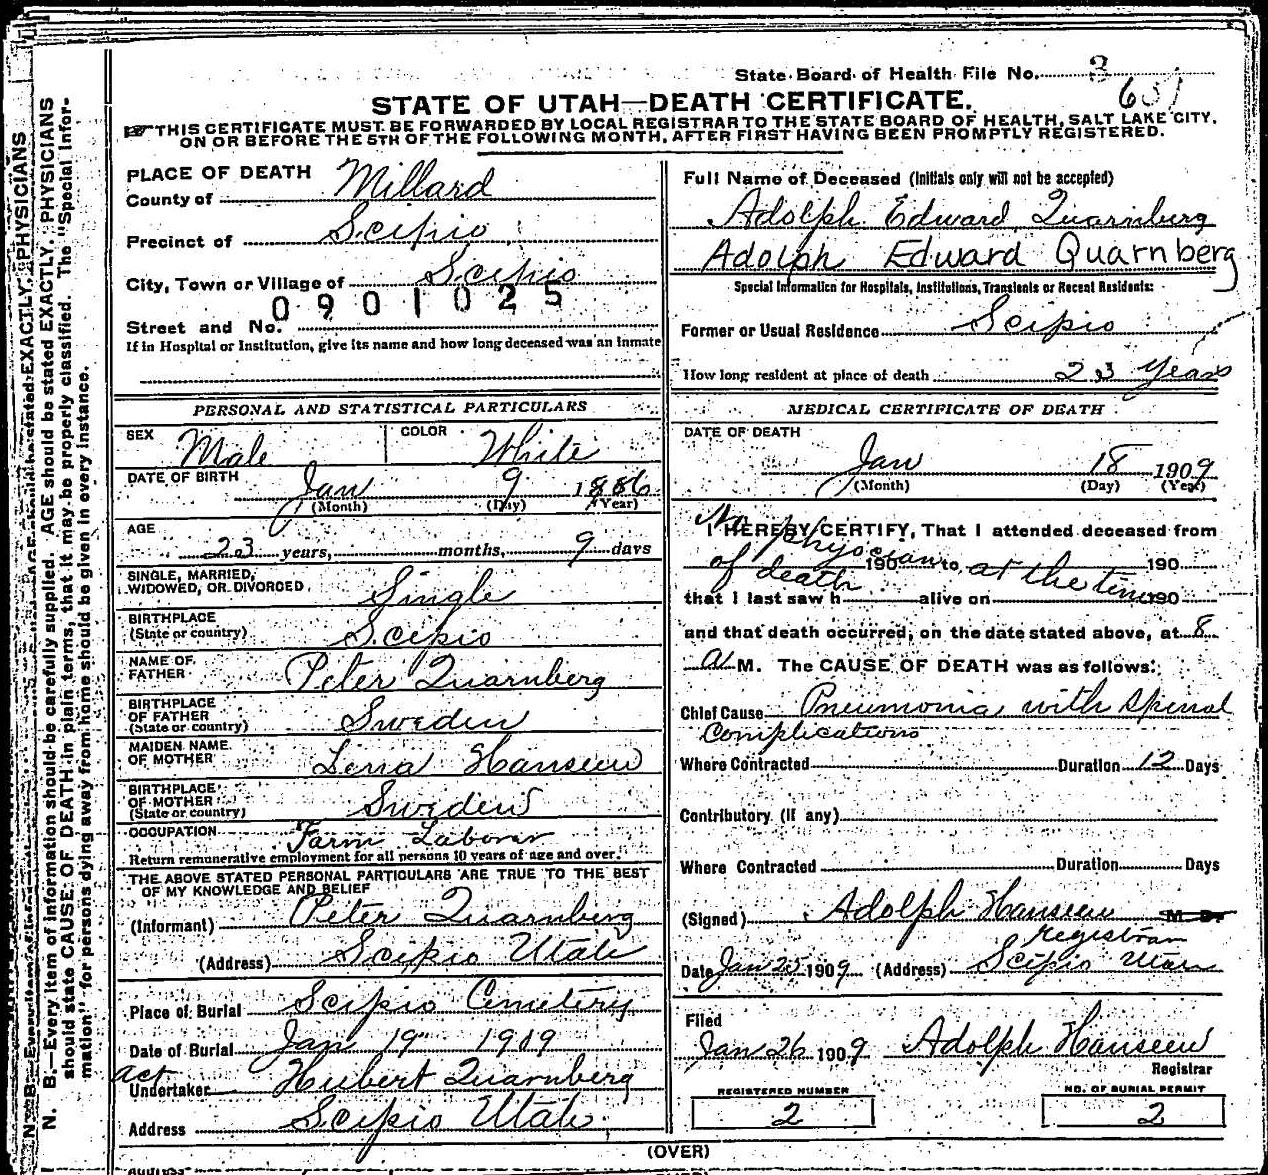 State Board of Health File No. 3
STATE OF UTAH—DEATH CERTIFICATE.
☞THIS CERTIFICATE MUST BE FORWARDED BY LOCAL REGISTRAR TO THE STATE BOARD OF HEALTH, SALT LAKE CITY,
ON OR BEFORE THE 5TH OF THE FOLLOWING MONTH, AFTER FIRST HAVING BEEN PROMPTLY REGISTERED.
PLACE OF DEATH
County of Millard
Precinct of Scipio
City, Town or Village of Scipio
0901025
Street and No.
If in Hospital or Institution, give its name and how long deceased was an inmate
PERSONAL AND STATISTICAL PARTICULARS
SEX Male COLOR White
DATE OF BIRTH Jan 9 1886
(Month) (Day) (Year)
AGE 23 years, months, 9 days
SINGLE, MARRIED,
WIDOWED, OR DIVORCED Single
BIRTHPLACE
(State or country) Scipio
NAME OF
FATHER Peter Quarnberg
BIRTHPLACE
OF FATHER
(State or country) Sweden
MAIDEN NAME
OF MOTHER Lena Hanseen
BIRTHPLACE
OF MOTHER
(State or country) Sweden
OCCUPATION Farm Laborer
Return remunerative employment for all persons 10 years of age and over.
THE ABOVE STATED PERSONAL PARTICULARS ARE TRUE TO THE BEST
OF MY KNOWLEDGE AND BELIEF
(Informant) Peter Quarnberg
(Address) Scipio Utah
Place of Burial Scipio Cemetery
Date of Burial Jan 19 1909
act
Undertaker Hubert Quarnberg
Address Scipio Utah
Full Name of Deceased (Initials only will not be accepted)
Adolph Edward Quarnberg
Adolph Edward Quarnberg
Special Information for Hospitals, Institutions, Transients or Recent Residents:
Former or Usual Residence Scipio
How long resident at place of death 23 Years
MEDICAL CERTIFICATE OF DEATH
DATE OF DEATH
Jan 18 1909
(Month) (Day) (Year)
I HEREBY CERTIFY, That I attended deceased from
190 to 190
No physician at the time
of death
that I last saw h alive on 190
and that death occurred, on the date stated above, at 8
a M. The CAUSE OF DEATH was as follows:
Chief Cause Pneumonia with Spinal
Complications
Where Contracted Duration 12 Days
Contributory (if any)
Where Contracted Duration Days
(Signed) Adolph Hanseen M. D.
Registrar
Date Jan 25 1909 (Address) Scipio Utah
Filed
Jan 26 1909 Adolph Hanseen
Registrar
REGISTERED NUMBER NO. OF BURIAL PERMIT
2 2
(OVER)
N. B.—Every item of information should be carefully supplied. AGE should be stated EXACTLY. PHYSICIANS
should state CAUSE OF DEATH in plain terms, that it may be properly classified. The "Special Infor-
mation" for persons dying away from home should be given in every instance.